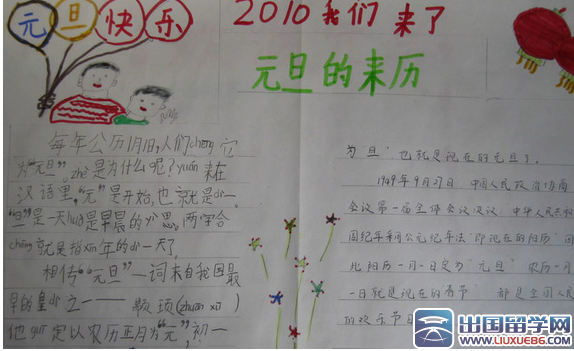 元旦快乐
2010我们来了
元旦的来历
每年公历1月1日,人们cheng它
为“元旦”。zhe是为什么呢?yuán来在
汉语里,“元”是开始,也就是di一。
“旦”是一天huò是早晨的yì思。两字合
cheng就是指xin年的di一天了。
相传“元旦”一词来自我国最
早的皇dì之一——颛顼(zhuān xū)
他guī定以农历正月为“元”,初一
为旦 也就是现在的元旦了。
1949年9月27日 中国人民政治协商
会议第一届全体会议决议 中华人民共和
国纪年采用公元纪年法 即现在的阳历
此阳历一月一日定为“元旦” 农历一月
一日就是现在的春节 都是全国人民
的欢乐节日
出国留学网
WWW.LIUXUE86.COM